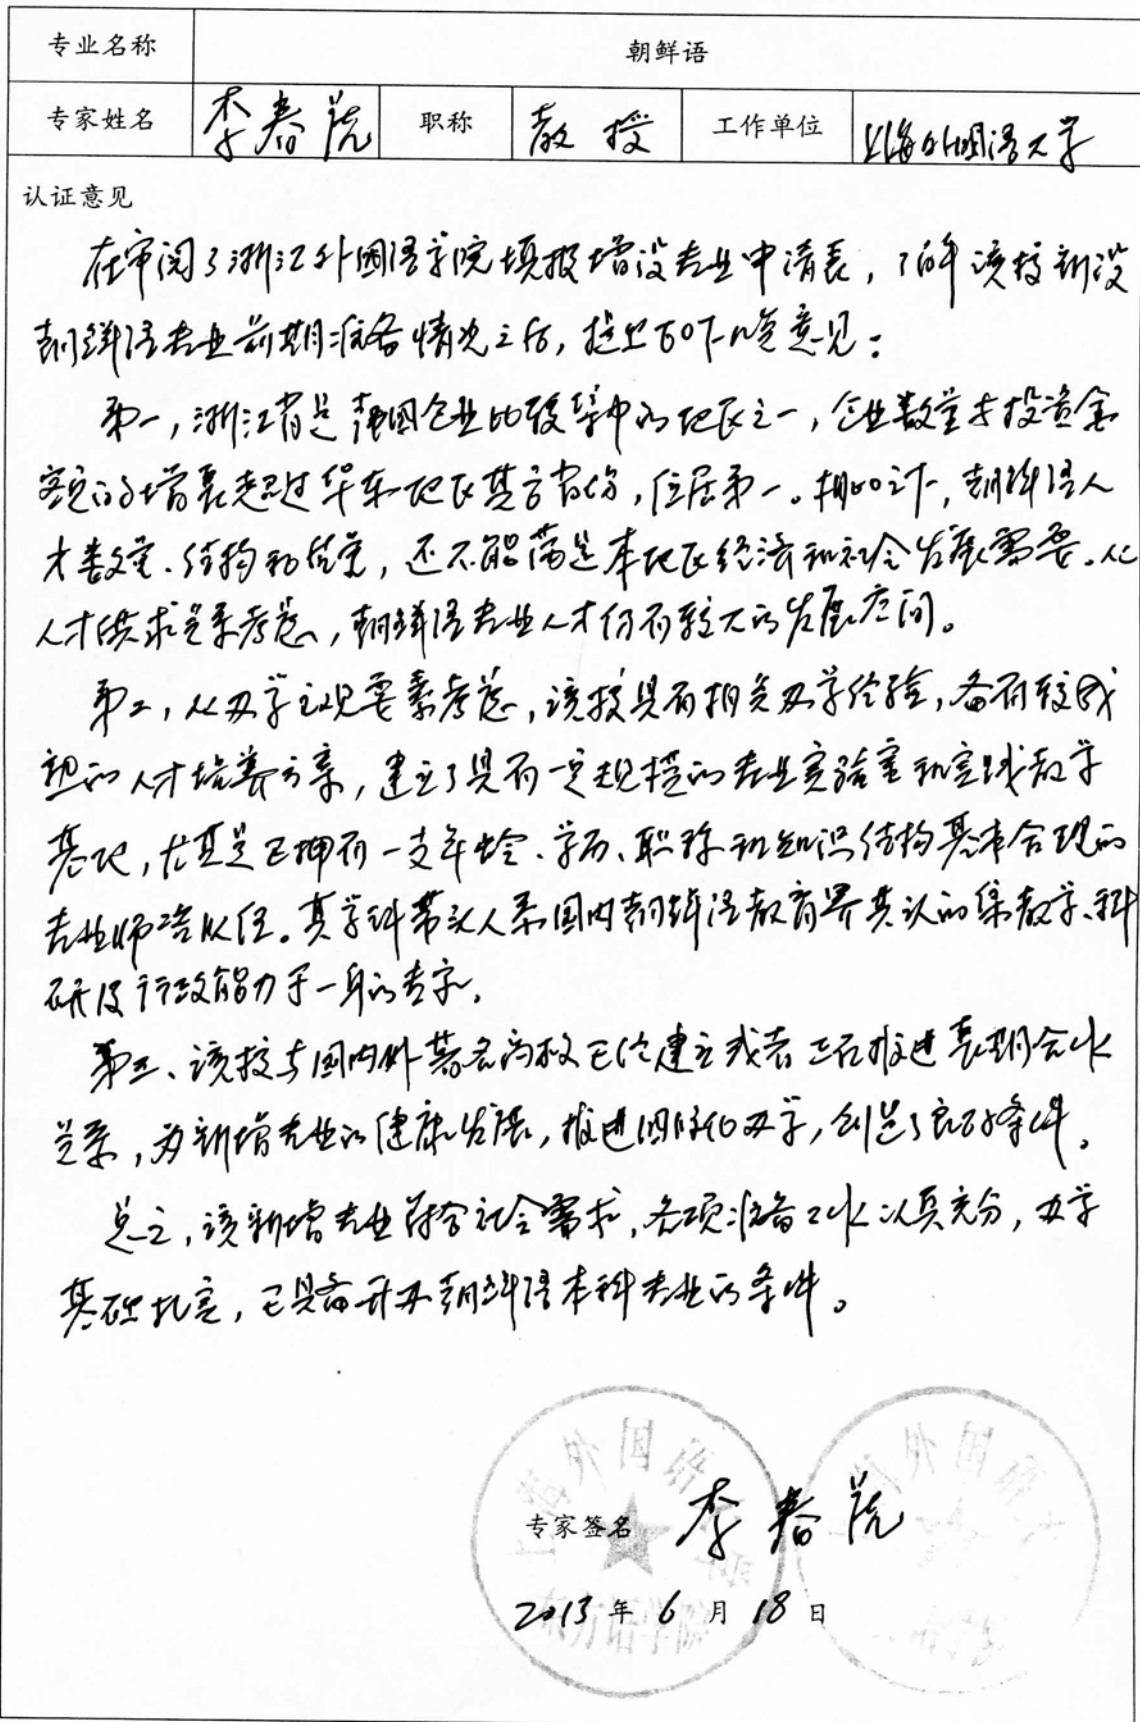 专业名称 朝鲜语
专家姓名 李春虎 职称 教授 工作单位 上海外国语大学
认证意见
在审阅了浙江外国语学院填报增设专业申请表，了解该校新设
朝鲜语专业前期准备情况之后，提出如下几点意见：
第一，浙江省是韩国企业比较集中的地区之一，企业数量与投资金
额的增长超过华东地区其它省份，位居第一。相比之下，朝鲜语人
才数量、结构和质量，还不能满足本地区经济和社会发展需要。从
人才供求关系考虑，朝鲜语专业人才仍有较大的发展空间。
第二，从办学主观要素考虑，该校具有相关办学经验，备有较成
熟的人才培养方案，建立了具有一定规模的专业实验室和实践教学
基地，尤其是已拥有一支年龄、学历、职称和知识结构基本合理的
专业师资队伍。其学科带头人系国内朝鲜语教育界共认的集教学、科
研及行政能力于一身的专家。
第三、该校与国内外著名高校已经建立或者正在推进长期合作
关系，为新增专业的健康发展，推进国际化办学，创造了良好条件。
总之，该新增专业符合社会需求，各项准备工作认真充分，办学
基础扎实，已具备开办朝鲜语本科专业的条件。
专家签名 李春虎
2013年6月18日
上海外国语
东方语学院
外国语大